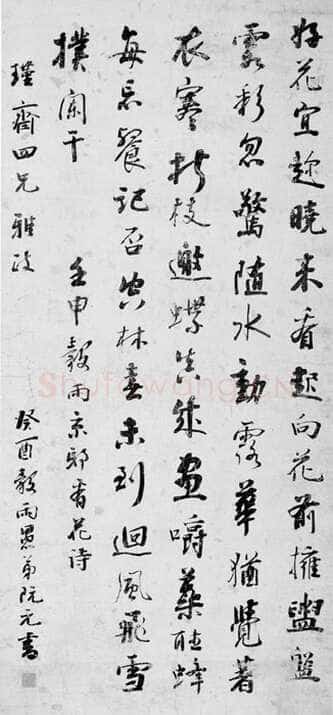 好花宜趁曉來看起向花前擁盥盤
彩忽驚隨水動露華猶覺著
衣寒折枝邀蝶真成畫嚼蘂聽蜂
每忘餐記否空林春未到迴風飛雪
撲闌干 壬申穀雨京邸看花詩
瑾齋四兄雅政 癸酉穀雨愚弟阮元書